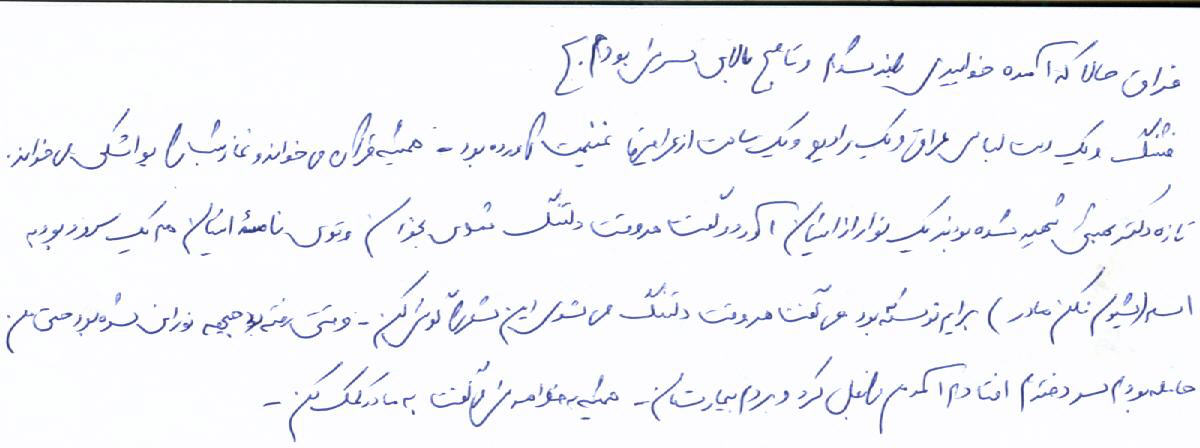 فراق حالا که آمده خوابیدی بلند شدم و تا صبح بالای سرش بودم.
فشنگ و یک دست لباس عراقی و یک رادیو و یک ساعت از عراقیها غنیمت آورده بود - همیشه قرآن می خواند و نماز شب را یواشکی می خواند.
تازه دکتر بهشتی شهید شده بودند یک نوار از ایشان آورد و گفت هر وقت دلتنگ شدی بخوان و توی نامهٔ ایشان هم یک سرود بود به
اسم (شیون نکن مادر) برایم نوشته بود می گفت هر وقت دلتنگ می شوی این شعر را گوش کن - وقتی رفته بود جبهه نورانی شده بود حتی من
حامله بودم سر دخترم افتادم آمد من را بغل کرد و بردم بیمارستان - همیشه به خواهرش می گفت به مادر کمک کن -